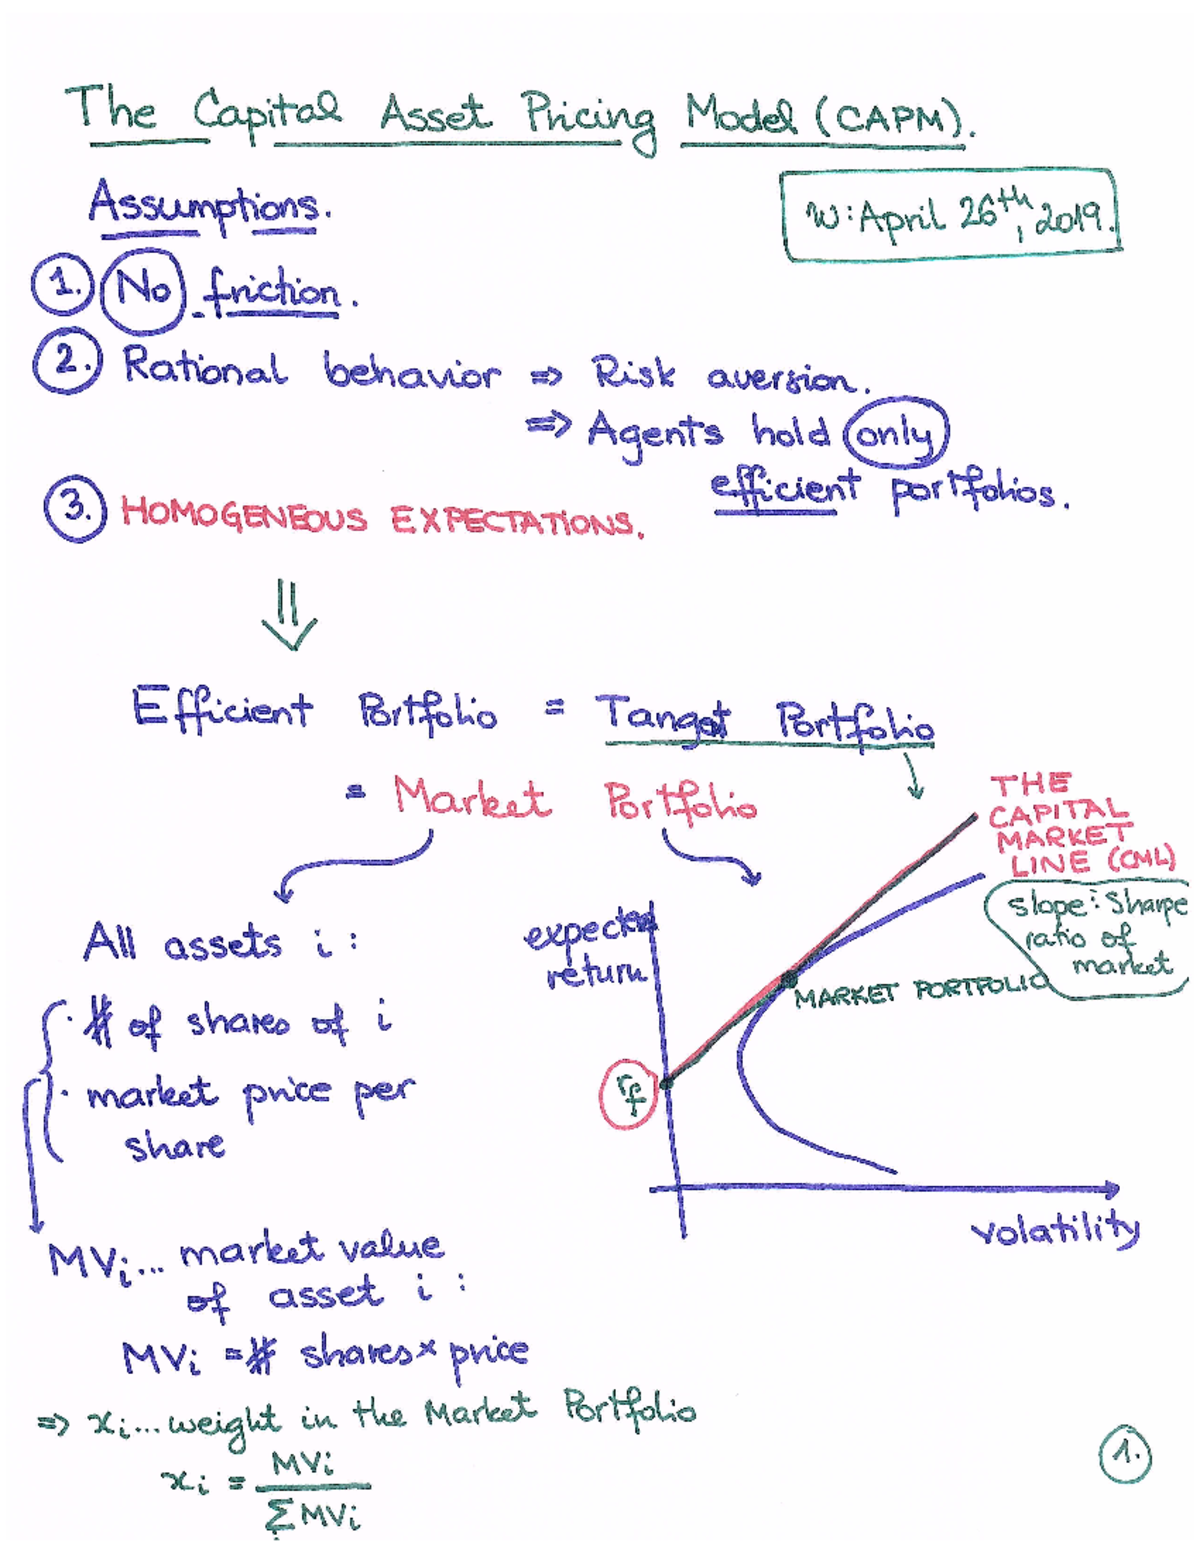 The Capital Asset Pricing Model (CAPM).
Assumptions.
W: April 26th, 2019.
1. No friction.
2. Rational behavior => Risk aversion.
=> Agents hold only
efficient portfolios.
3. HOMOGENEOUS EXPECTATIONS.
⇓
Efficient Portfolio = Tangot Portfolio
= Market Portfolio
THE
CAPITAL
MARKET
LINE (CML)
slope: Sharpe
ratio of
market
expected
return
MARKET PORTFOLIO
rf
volatility
All assets i :
· # of shares of i
· market price per
share
MVi... market value
of asset i :
MVi = # shares × price
=> xi... weight in the Market Portfolio
xi = MVi / ΣMVi
1.